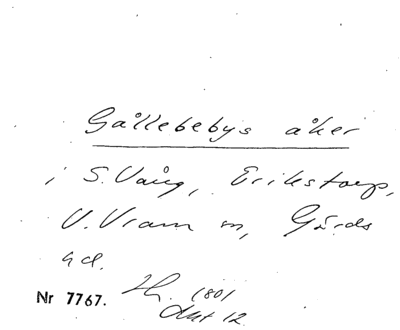 Gållebebys åker
i S. Vång, Erikstorp,
V. Vram m, Gärds
hd.
Nr 7767. 1801
Akt 12